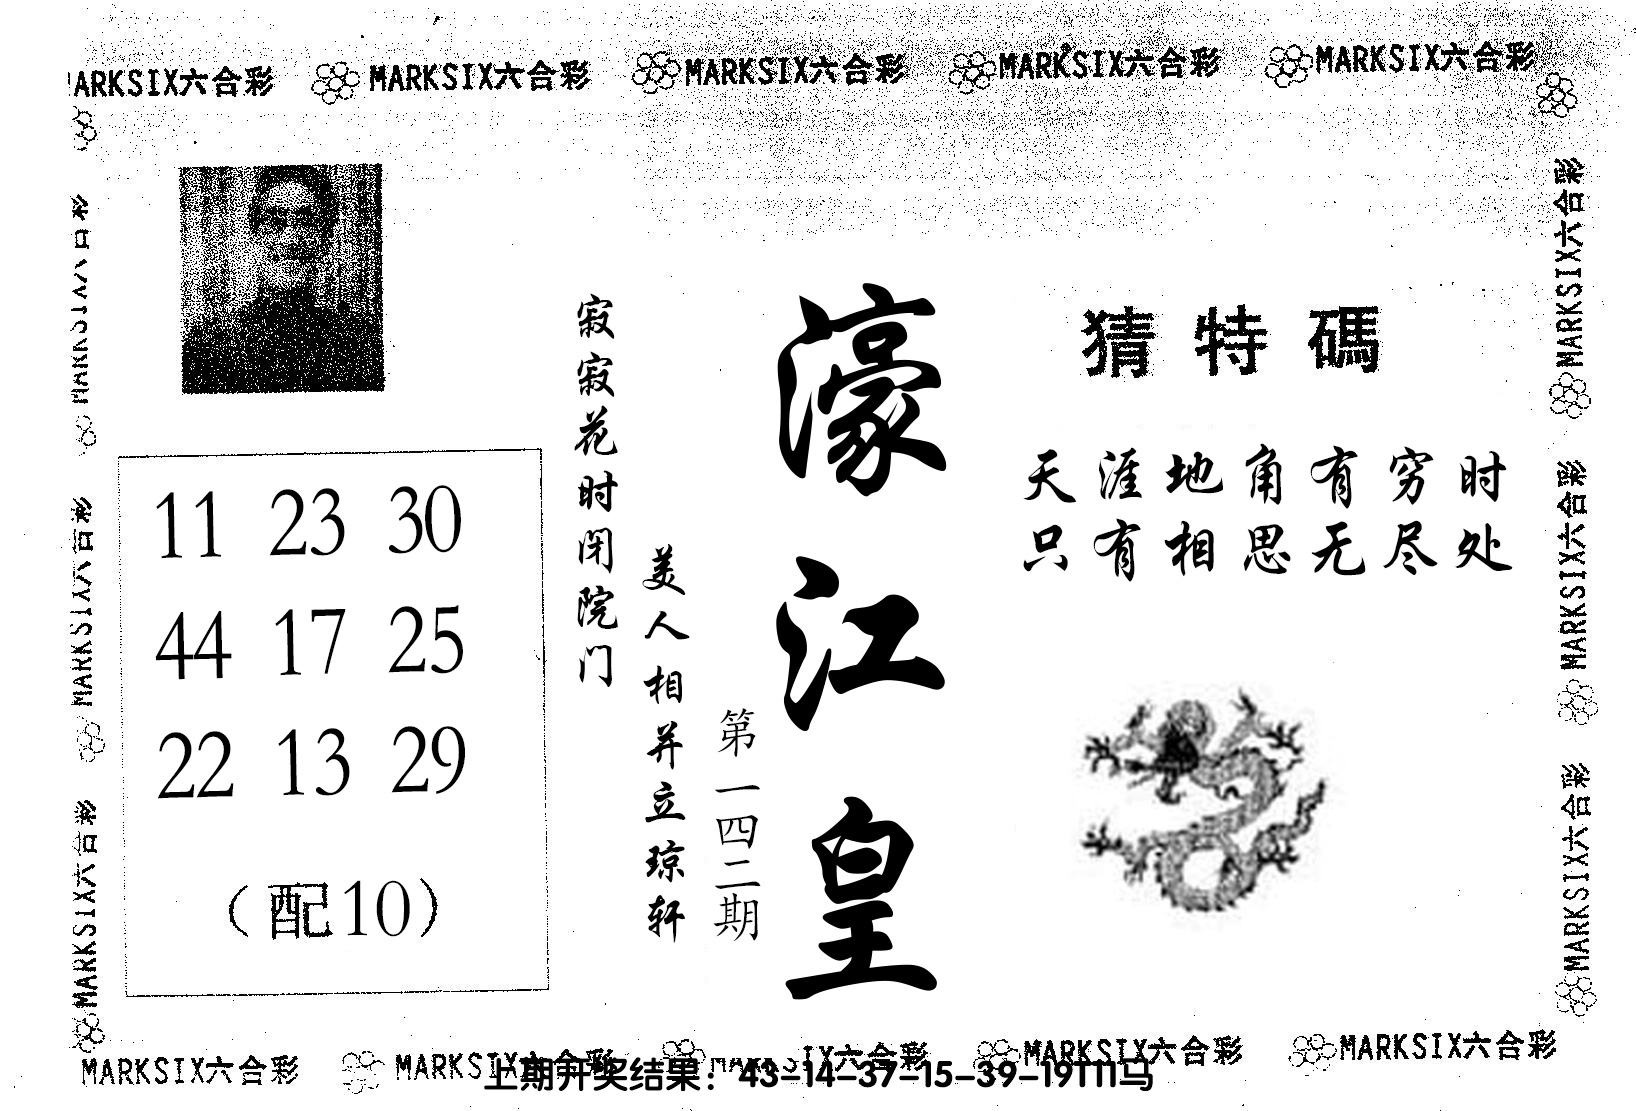 MARKSIX六合彩 MARKSIX六合彩 MARKSIX六合彩 MARKSIX六合彩
MARKSIX六合彩
MARKSIX六合彩
MARKSIX六合彩
MARKSIX六合彩
MARKSIX六合彩
11 23 30
44 17 25
22 13 29
(配10)
寂寂花时闭院门
美人相并立琼轩
第一四二期
濠江皇
猜特碼
天涯地角有穷时
只有相思无尽处
MARKSIX六合彩
MARKSIX六合彩
MARKSIX六合彩
MARKSIX六合彩 MARKSIX六合彩 六合彩 MARKSIX六合彩 MARKSIX六合彩
上期开奖结果：43-14-37-15-39-19T11马